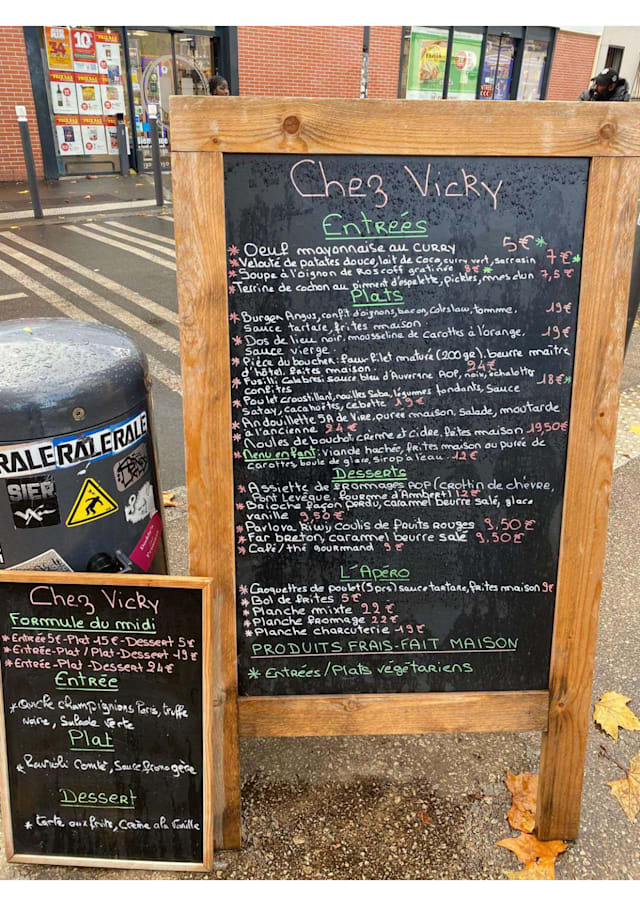 34
10€
RALE RALE RALE
SIER
Chez Vicky
Entreés
* Oeuf mayonnaise au CURRY 5€*
* Velouté de patates douce, lait de coco, curry vert, sarrasin 7€*
* Soupe à l'oignon de Roscoff gratinée 8€*
* Terrine de cochon au piment d'espelette, pickles, mesclun 7,5€
Plats
* Burger Angus, confit d'oignons, bacon, coleslaw, tomme, 19€
Sauce tartare, frites maison.
* Dos de lieu noir, mousseline de Carottes à l'orange, 19€
Sauce vierge.
* Pièce du boucher: faux-filet maturé (200gr), beurre maitre
d'hôtel, frites maison. 24€
* Fusilli Calabresi sauce bleu d'Auvergne AOP, noix, echalottes 18€*
confites
* Poulet croustillant, nouilles Soba, légumes fondants, Sauce
Satay, cacahuètes, cébette 19€
* Andouillette 5A de Vire, purée maison, Salade, moutarde
à l'ancienne 24€
* Moules de bouchot, crème et cidre, frites maison 19,50€
* Menu enfant: Viande hachée, frites maison ou purée de
carottes, boule de glace, sirop à l'eau. 12€
Desserts
* Assiette de FROMAGES AOP (Crottin de chèvre,
Pont Levêque, fourme d'Ambert) 12€
* Brioche façon perdu, caramel beurre salé, glace
vanille 9,50€
* Pavlova Kiwi, Coulis de fruits rouges 9,50€
* Far breton, caramel beurre salé 9,50€
* Café/thé gourmand 9€
L'Apéro
* Croquettes de poulet (5 pcs) sauce tartare, frites maison 9€
* Bol de frites 5€
* Planche mixte 22€
* Planche fromage 22€
* Planche charcuterie 19€
PRODUITS FRAIS-FAIT MAISON
* Entrées/Plats végétariens
Chez Vicky
Formule du midi
* Entrée 5€-Plat 15€-Dessert 5€
* Entrée-Plat / Plat-Dessert 19€
* Entrée-Plat-Dessert 24€
Entrée
* Quiche champignions Paris, truffe
noire, Salade verte
Plat
* Ravioli Comté, Sauce
Dessert
* tarte aux fruits, Crème a la Vanille